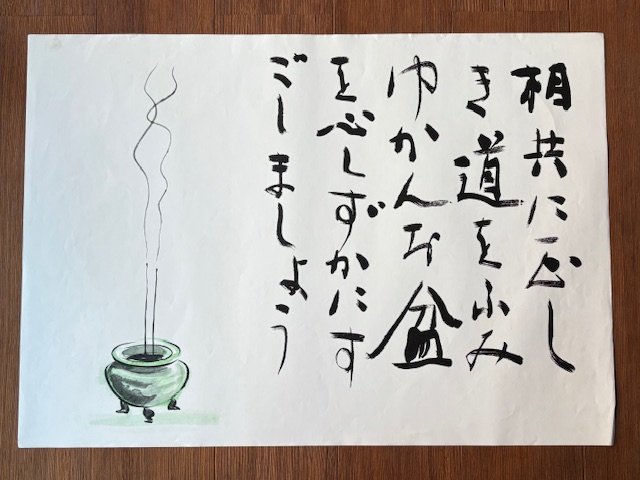 相共に正し
き道をふみ
ゆかんお盆
を心しずかにす
ごしましょう